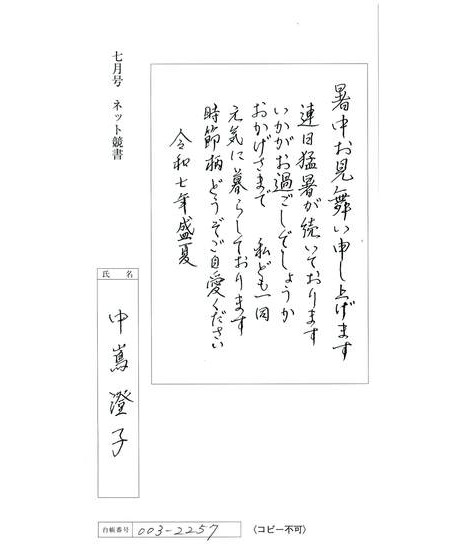 暑中お見舞い申し上げます
連日猛暑が続いております
いかがお過ごしでしょうか
おかげさまで　私ども一同
元気に暮らしております
時節柄どうぞご自愛ください
令和七年盛夏
七月号　ネット競書
氏名
中嶌澄子
台帳番号 003-2257
〈コピー不可〉